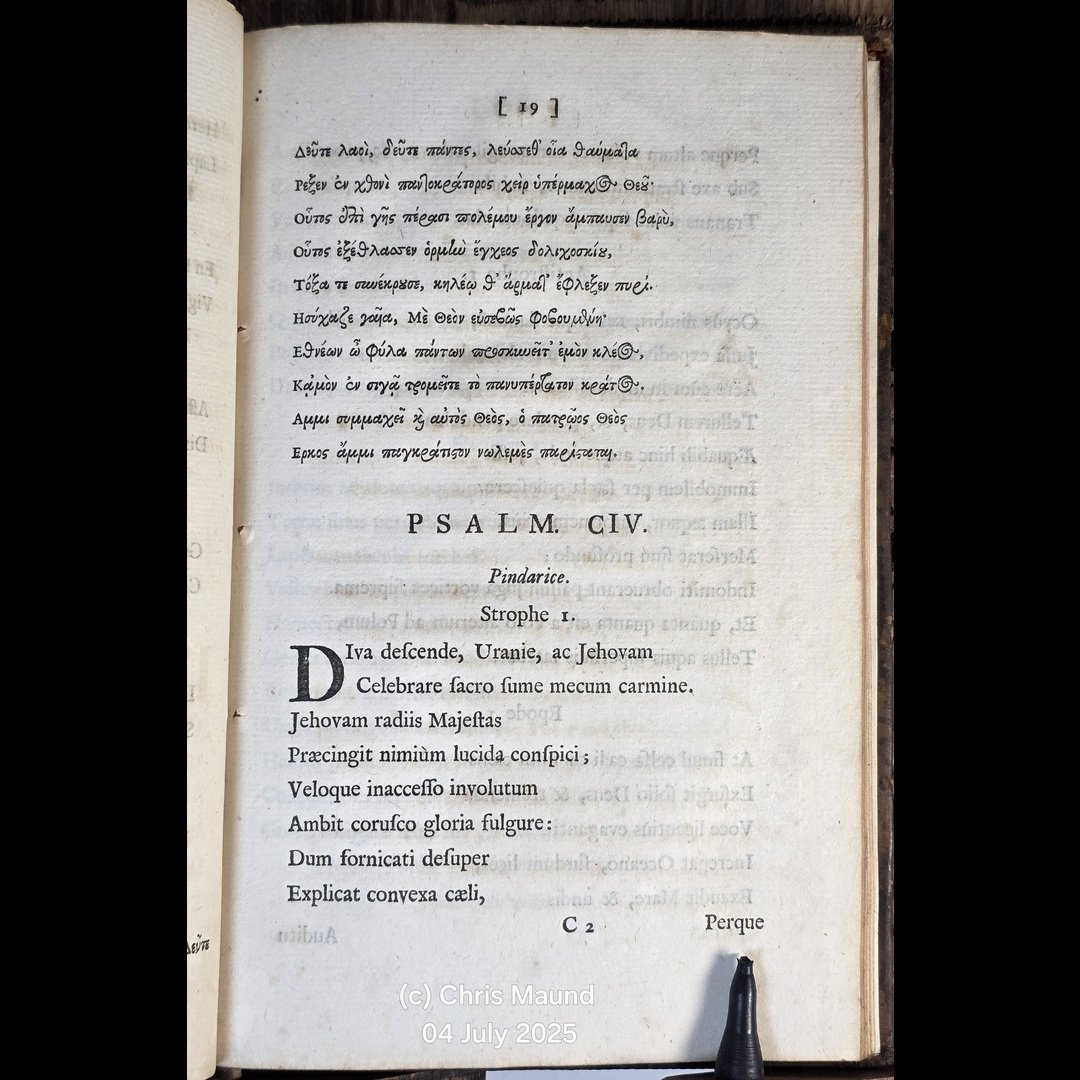 [ 19 ]
Δεῦτε λαοὶ, δεῦτε πάντες, λεύσσεθ' οἷα θαύματα
Ρεξεν ἐν χθονὶ παντοκράτορος χεὶρ ὑπέρμαχος Θεοῦ·
Οὗτος ἐπὶ γῆς πέρασι πολέμου ἔργον ἄμπαυσεν βαρὺ,
Οὗτος ἐξέθλασσεν ὁρμὴν ἔγχεος δολιχοσκίου,
Τόξα τε συνέκρουσε, κηλέῳ θ' ἅρματ' ἔφλεξεν πυρί.
Ησύχαζε γαῖα, Μὲ Θεὸν εὐσεβῶς φοβουμένη·
Εθνέων ὦ φύλα πάντων προσκυνεῖτ' ἐμὸν κλέος,
Κᾀμὸν ἐν σιγᾷ τρομεῖτε τὸ πανυπέρτατον κράτος.
Αμμι συμμαχεῖ καὶ αὐτὸς Θεὸς, ὁ πατρῷος Θεὸς
Ερκος ἄμμι παγκράτιστον νωλεμὲς παρίσταται.
PSALM. CIV.
Pindarice.
Strophe 1.
DIva deſcende, Uranie, ac Jehovam
Celebrare ſacro ſume mecum carmine.
Jehovam radiis Majeſtas
Præcingit nimiùm lucida conſpici;
Veloque inacceſſo involutum
Ambit coruſco gloria fulgure:
Dum fornicati deſuper
Explicat convexa cæli,
C 2 Perque
Δεῦτε
(c) Chris Maund
04 July 2025